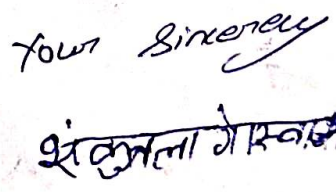 Your Sincerely
शंकुन्तला गोस्वामी